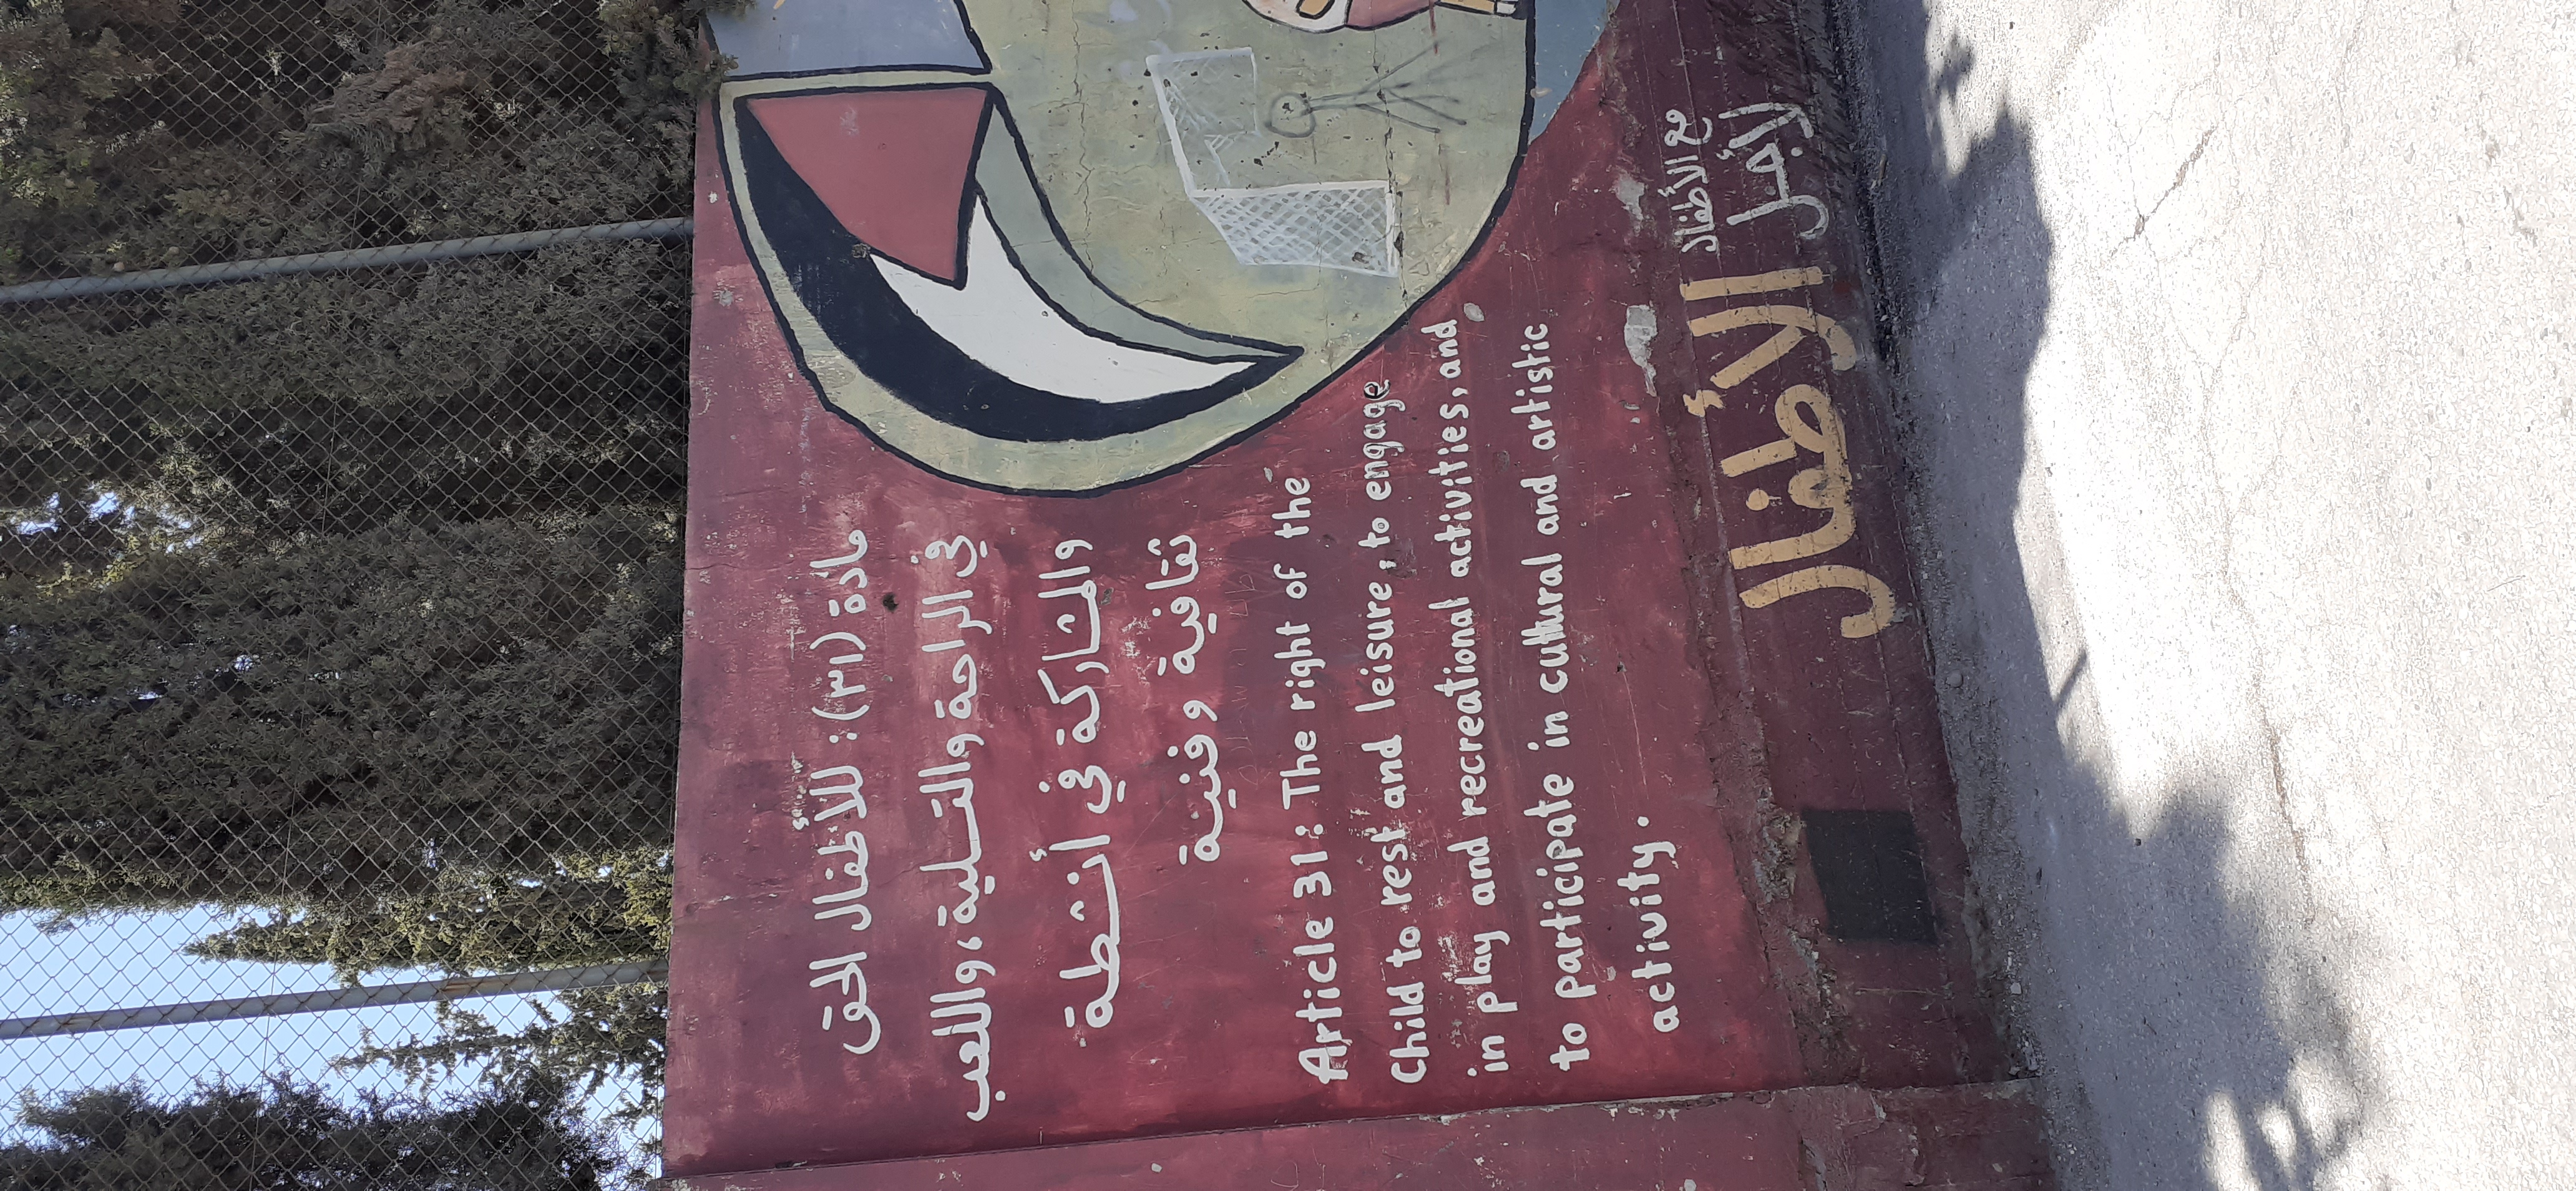 مادة (٣١): للأطفال الحق
في الراحة والتسلية، واللعب
والمشاركة في أنشطة
ثقافية وفنية
Article 31: The right of the
Child to rest and leisure, to engage
in play and recreational activities, and
to participate in cultural and artistic
activity.
مع الأطفال
لأجل الأطفال